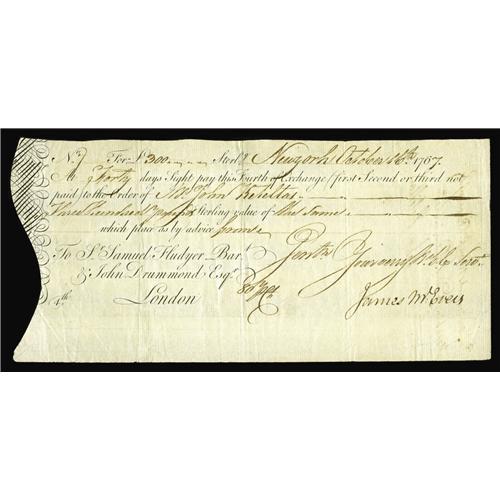 No. 7 For £300 „ „ „ Sterlg. Newyork October 16th 1767.
At Forty days Sight pay this Fourth of Exchange (first Second or third not
paid) to the Order of Mr. John Keteltas
three hundred pounds Sterling value of the Same
which place as by advice from
To Sr. Samuel Fludyer Bart.
& John Drummond Esqrs. Gents
London James McEvers
4th.